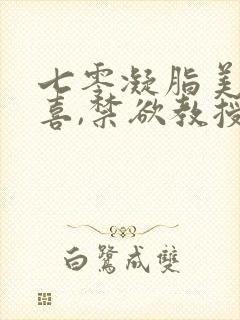 七零凝脂美
喜,禁欲教授
白鹭成双